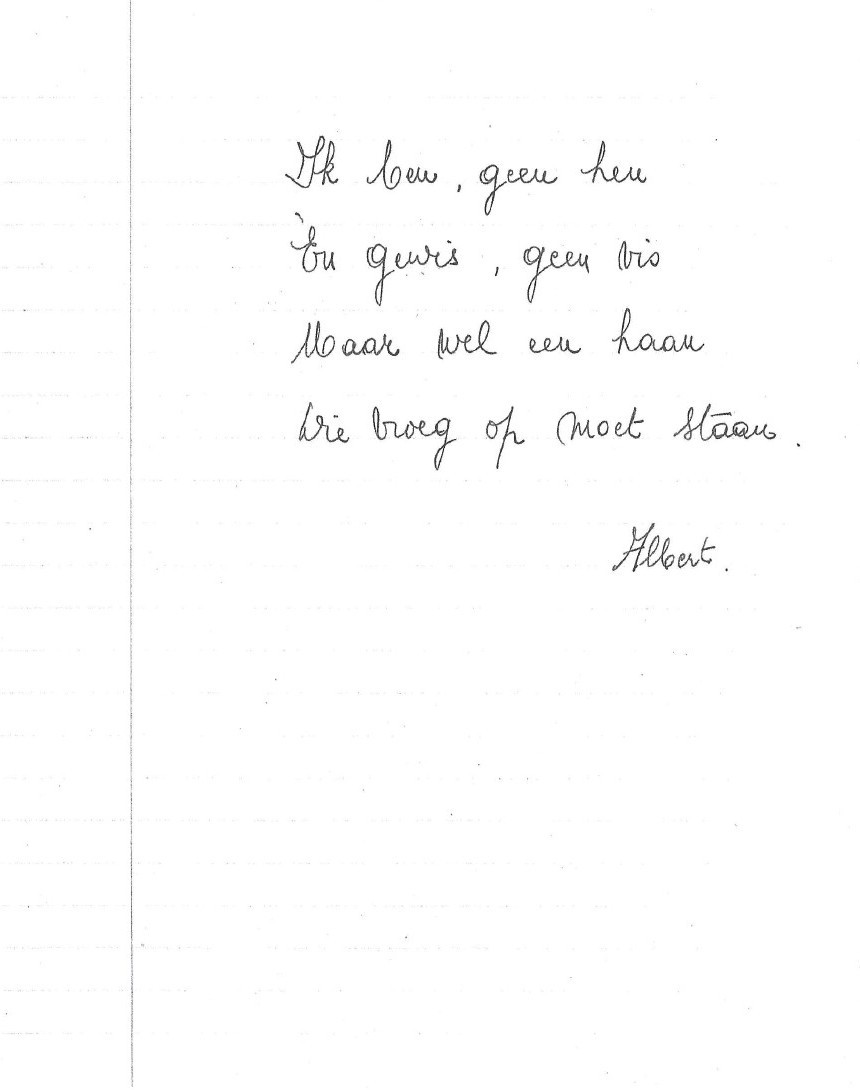 Ik ben, geen hen
En gewis, geen vis
Maar wel een haan
Die vroeg op moet staan.
Albert.